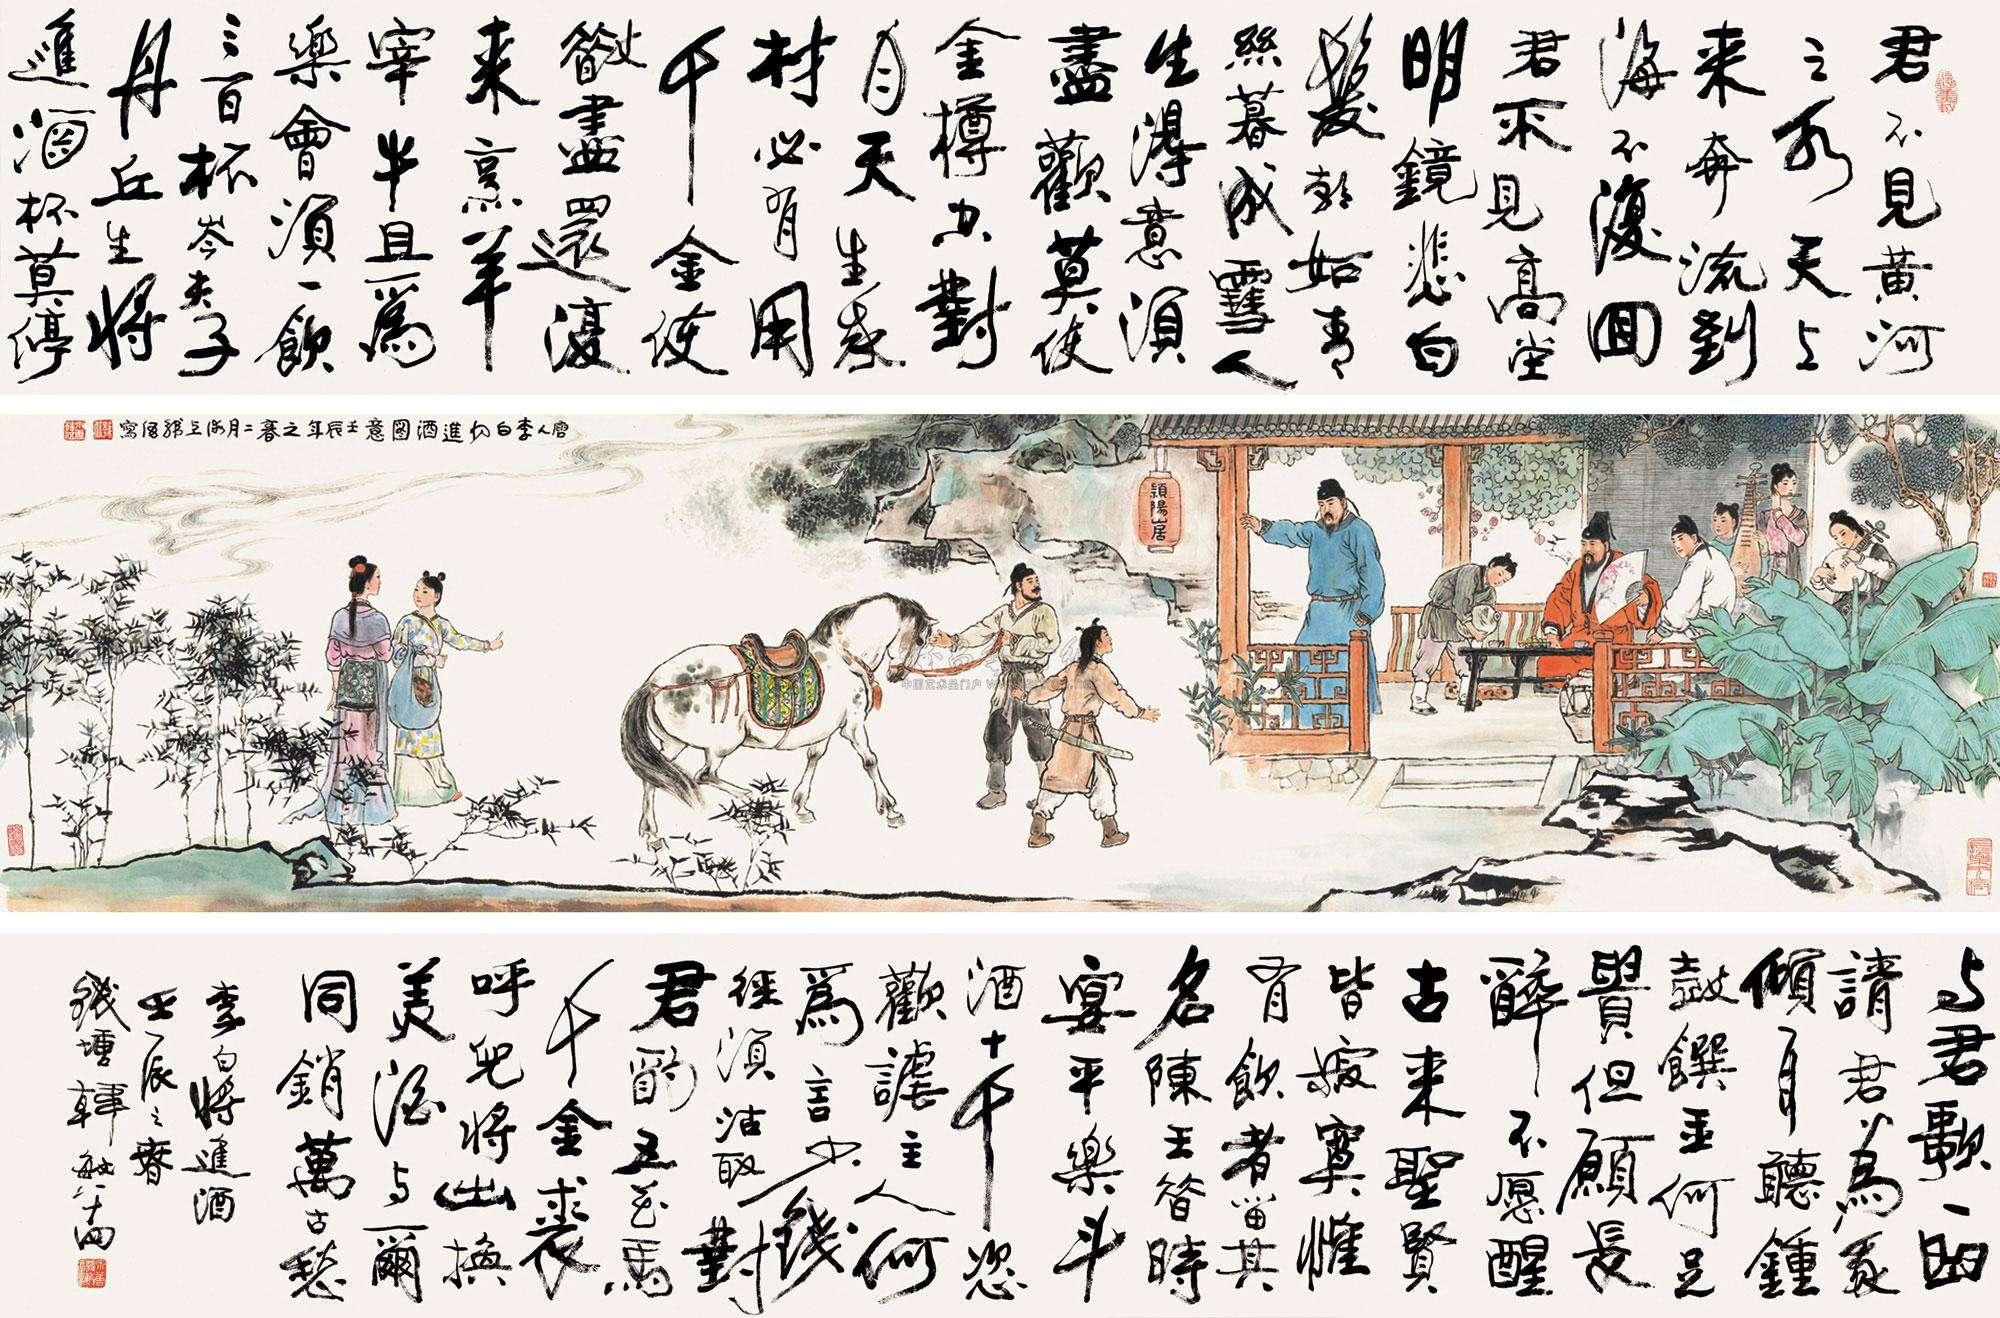 君不見黃河
之水天上
来奔流到
海不復回
君不見高堂
明鏡悲白
髮朝如青
絲暮成雪人
生得意須
盡歡莫使
金樽空對
月天生我
材必有用
千金散
盡還復
来烹羊
宰牛且爲
樂會須一飲
三百杯岑夫子
丹丘生將
進酒杯莫停
唐人李白將進酒图意壬辰年之春二月
穎陽山居
与君歌一曲
請君爲我
傾耳聽鍾
鼓饌玉何足
貴但願長
醉不愿醒
古来聖賢
皆寂寞惟
有飲者留其
名陳王昔時
宴平樂斗
酒十千恣
歡謔主人何
爲言少錢
徑須沽取對
君酌五花馬
千金裘
呼兒將出換
美酒与爾
同銷萬古愁
李白將進酒
壬辰之春
錢塘韓敏八十